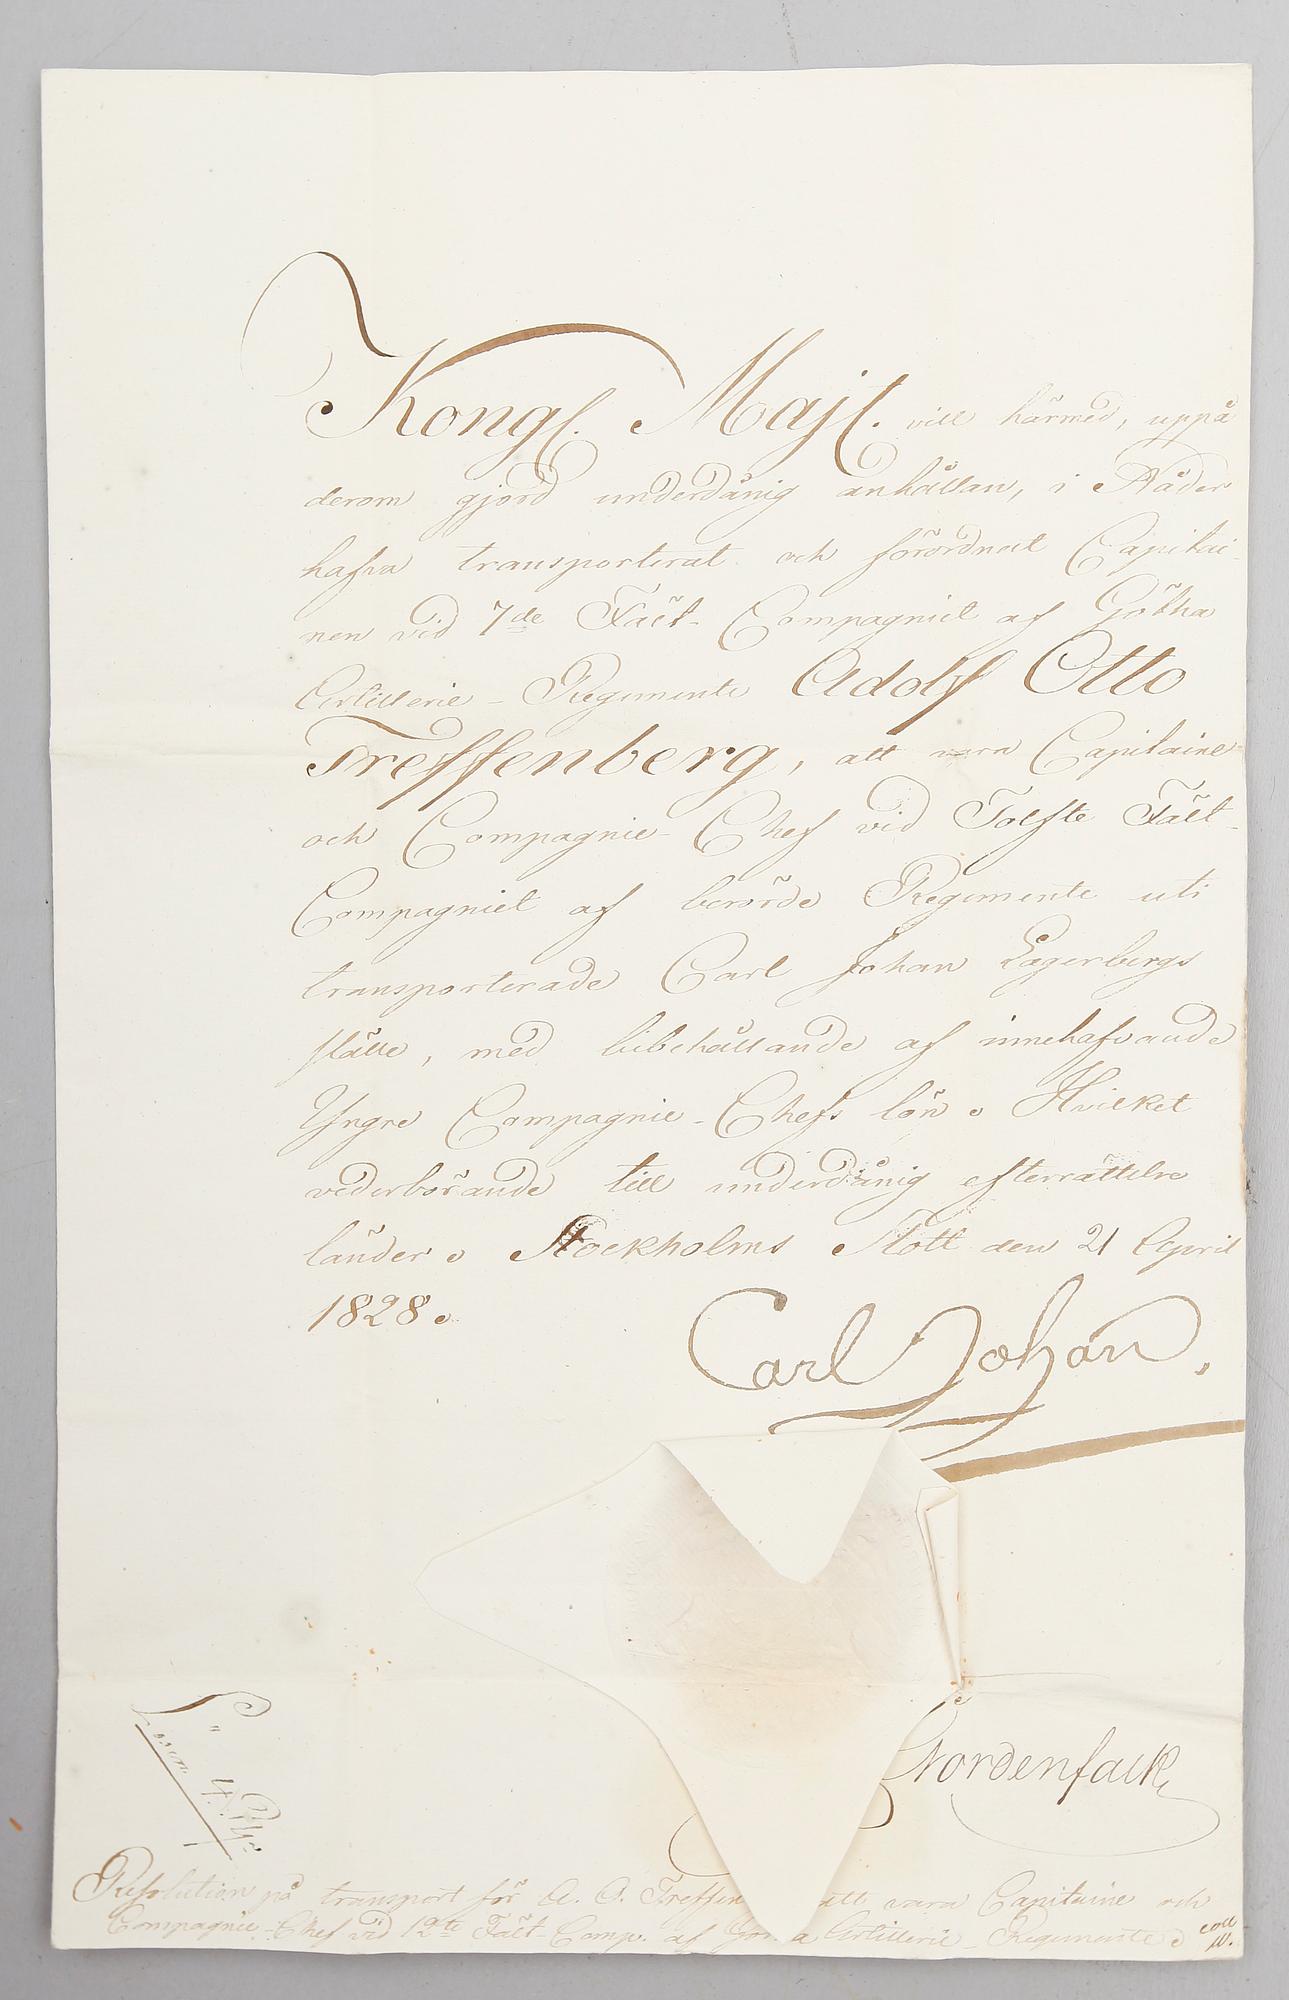 Kongl. Majt. vill härmed, uppå
derom gjord underdånig anhållan, i Nåder
hafva transporterat och förordnat Capitai-
nen vid 7de Fält-Compagniet af Götha
Artillerie-Regimente Adolf Otto
Treffenberg, att vara Capitaine
och Compagnie-Chef vid Tolfte Fält-
Compagniet af berörde Regimente uti
transporterade Carl Johan Lagerbergs
ställe, med bibehållande af innehafvande
Yngre Compagnie-Chefs lön. Hvilket
vederbörande till underdånig efterrättelse
länder. Stockholms Slott den 21 April
1828.
Carl Johan.
Nordenfalk
Lösen 4
Resolution på transport för A. O. Treffen att vara Capitaine och
Compagnie-Chef vid 12te Fält-Comp. af Gö a Artillerie-Regimente.
coll